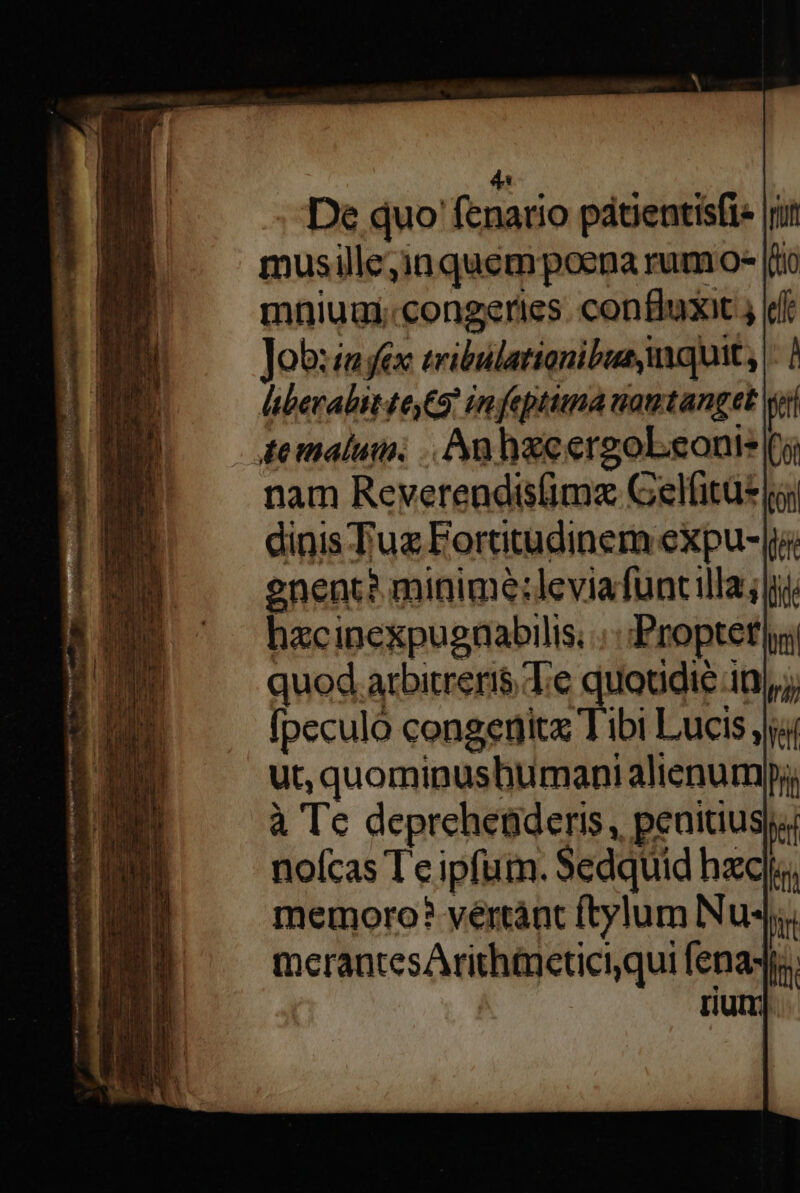 4
De quo ſenario patientisſi-
mus ille, in quem pœnarum o-
mnium congeries confluxit,
Job: in ſex tribulationibus, inquit,
liberabit te, & in ſeptima non tanget
te malum. An hæc ergo Leoni-
nam Reverendisſimæ Celſitu-
dinis Tuæ Fortitudinem expu-
gnent? minimè: levia ſunt illa;
hæc inexpugnabilis. Propter
quod arbitreris Te quotidiè in
ſpeculo congenitæ Tibi Lucis,
ut, quominus humani alienum
à Te deprehenderis, penitius
noſcas Te ipſum. Sed quid hæc
memoro? vertant ſtylum Nu-
merantes Arithmetici, qui ſena-
rium